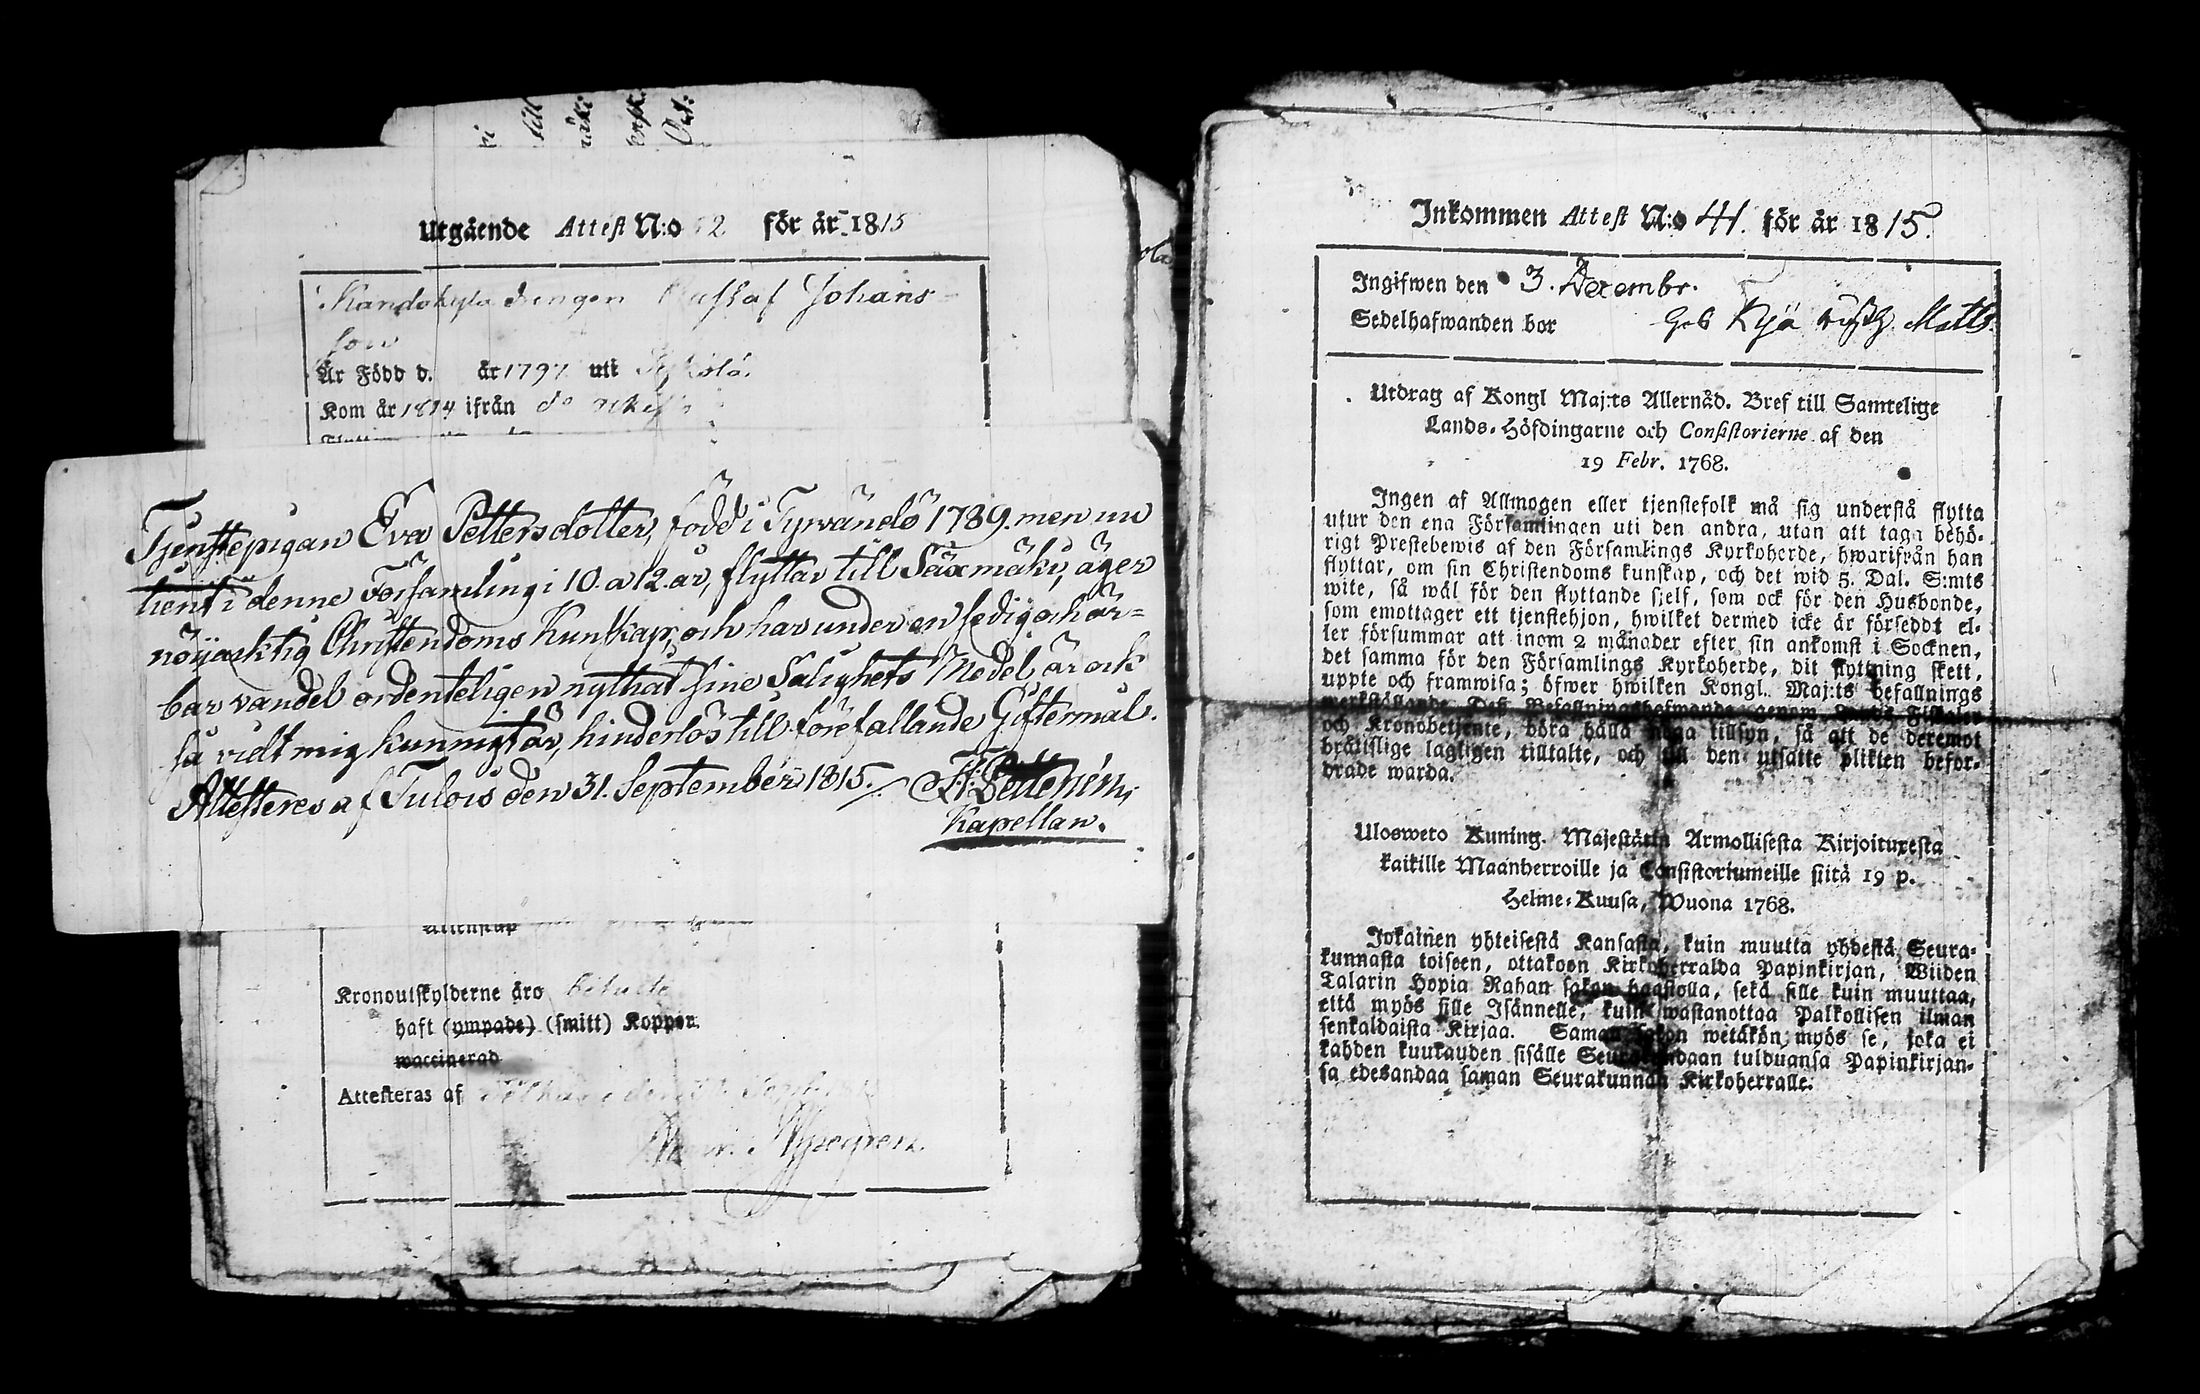 till
Utgående Attest N:o 2 för år 1815
Kandokyla drengen Johans-
son
Är Född d. år 1797 uti
Kom år 1814 ifrån
Tjenstepigan Eva Pettersdotter, född i Tyrvändö 1789. men nu
tient i denne Församling i 10. a 12. år, flyttar till Säxmäki, äger
nöijacktig Christendoms Kunskap, och har under en sedig och är=
bar vandel ordenteligen nythat sine Salighets Medel, är ock
så vidt mig kunnigt är, hinderlös till förefallande Giftermål.
Attesteres af Tulois den 31. September 1815.
Kapellan.
Kronoutskylderne äro betalte
haft (ympade) (smitt) Koppor.
waccinerad
Attesteras af
Inkommen Attest N:o 41. för år 1815.
Ingifwen den 3. Decembr.
Sedelhafwanden bor Matts
Utdrag af Kongl Maj:ts Allernåd. Bref till Samtelige
Lands-Höfdingarne och Consistorierne af den
19 Febr. 1768.
Ingen af Allmogen eller tjenstefolk må sig understå flytta
utur den ena Församlingen uti den andra, utan att taga behö-
rigt Prestebewis af den Församlings Kyrkoherde, hwarifrån han
flyttar, om sin Christendoms kunskap, och det wid 5. Dal. S:mts
wite, så wäl för den flyttande sjelf, som ock för den Husbonde,
som emottager ett tjenstehjon, hwilket dermed icke är försedt el-
ler försummar att inom 2 månader efter sin ankomst i Socknen,
det samma för den Församlings Kyrkoherde, dit flyttning skett,
uppte och framwisa; öfwer hwilken Kongl. Maj:ts befallnings
werkställande Dess Befallningshafwande genom Fiskaler
och Kronobetjente, böra hålla noga tillsyn, så att de deremot
brätslige lagligen tilltalte, och till den utsatte plikten befor-
drade warda.
Ulosweto Kuning. Majestätin Armollisesta Kirjoituxesta
kaikille Maanherroille ja Consistoriumeille siitä 19 p.
Helme-Kuusa, Wuona 1768.
Jokainen yhteisestä Kansasta, kuin muutta yhdestä Seura-
kunnasta toiseen, ottakoon Kirkoherralda Papinkirjan, Wiiden
Talarin Hopia Rahan sakon haastolla, sekä sille kuin muuttaa,
että myös sille Isännelle, kuin wastanottaa Palkollisen ilman
senkaldaista Kirjaa. Saman sakon wetäkön myös se, joka ei
kahden kuukauden sisälle Seurakundaan tulduansa Papinkirjan-
sa edesandaa saman Seurakunnan Kirkoherralle.